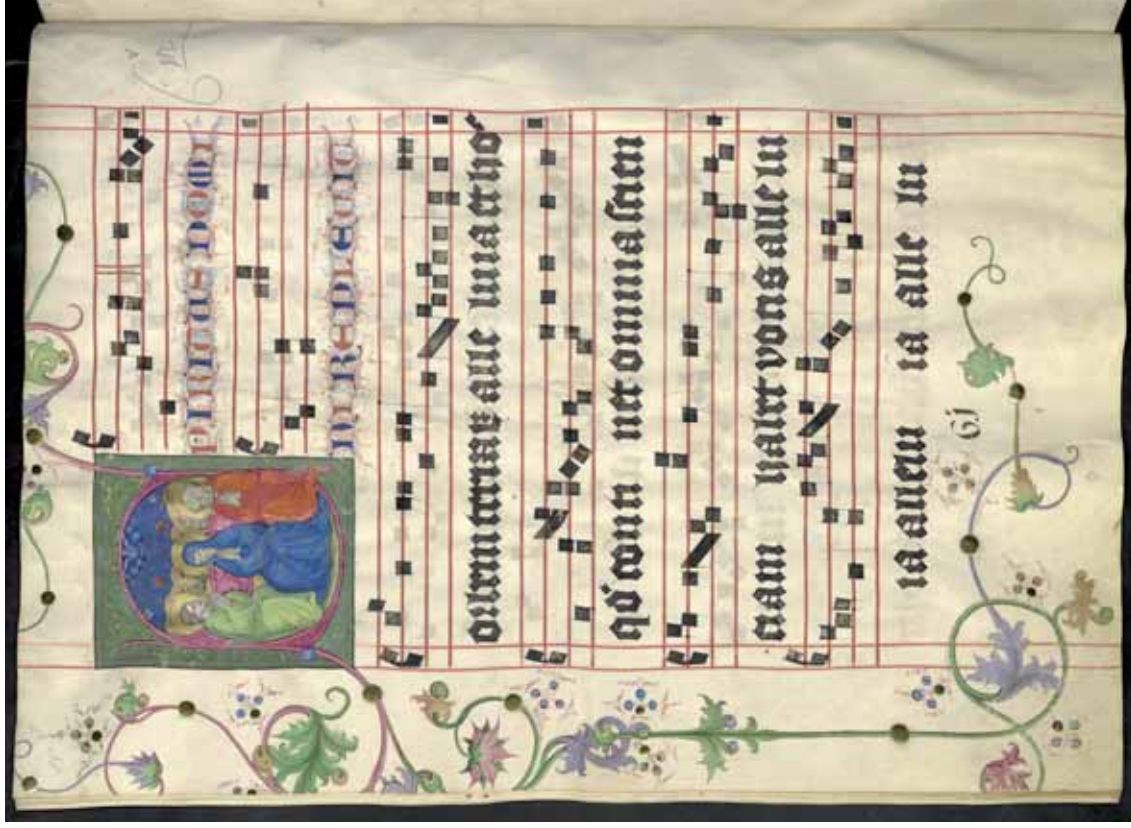 SPIRITUS DOMI
NI REPLEVIT
orbem terraꝝ alle luia et hoc
qd' conti net omnia scien
tiam habet vocis alle lu
ia allelu ia alle lu